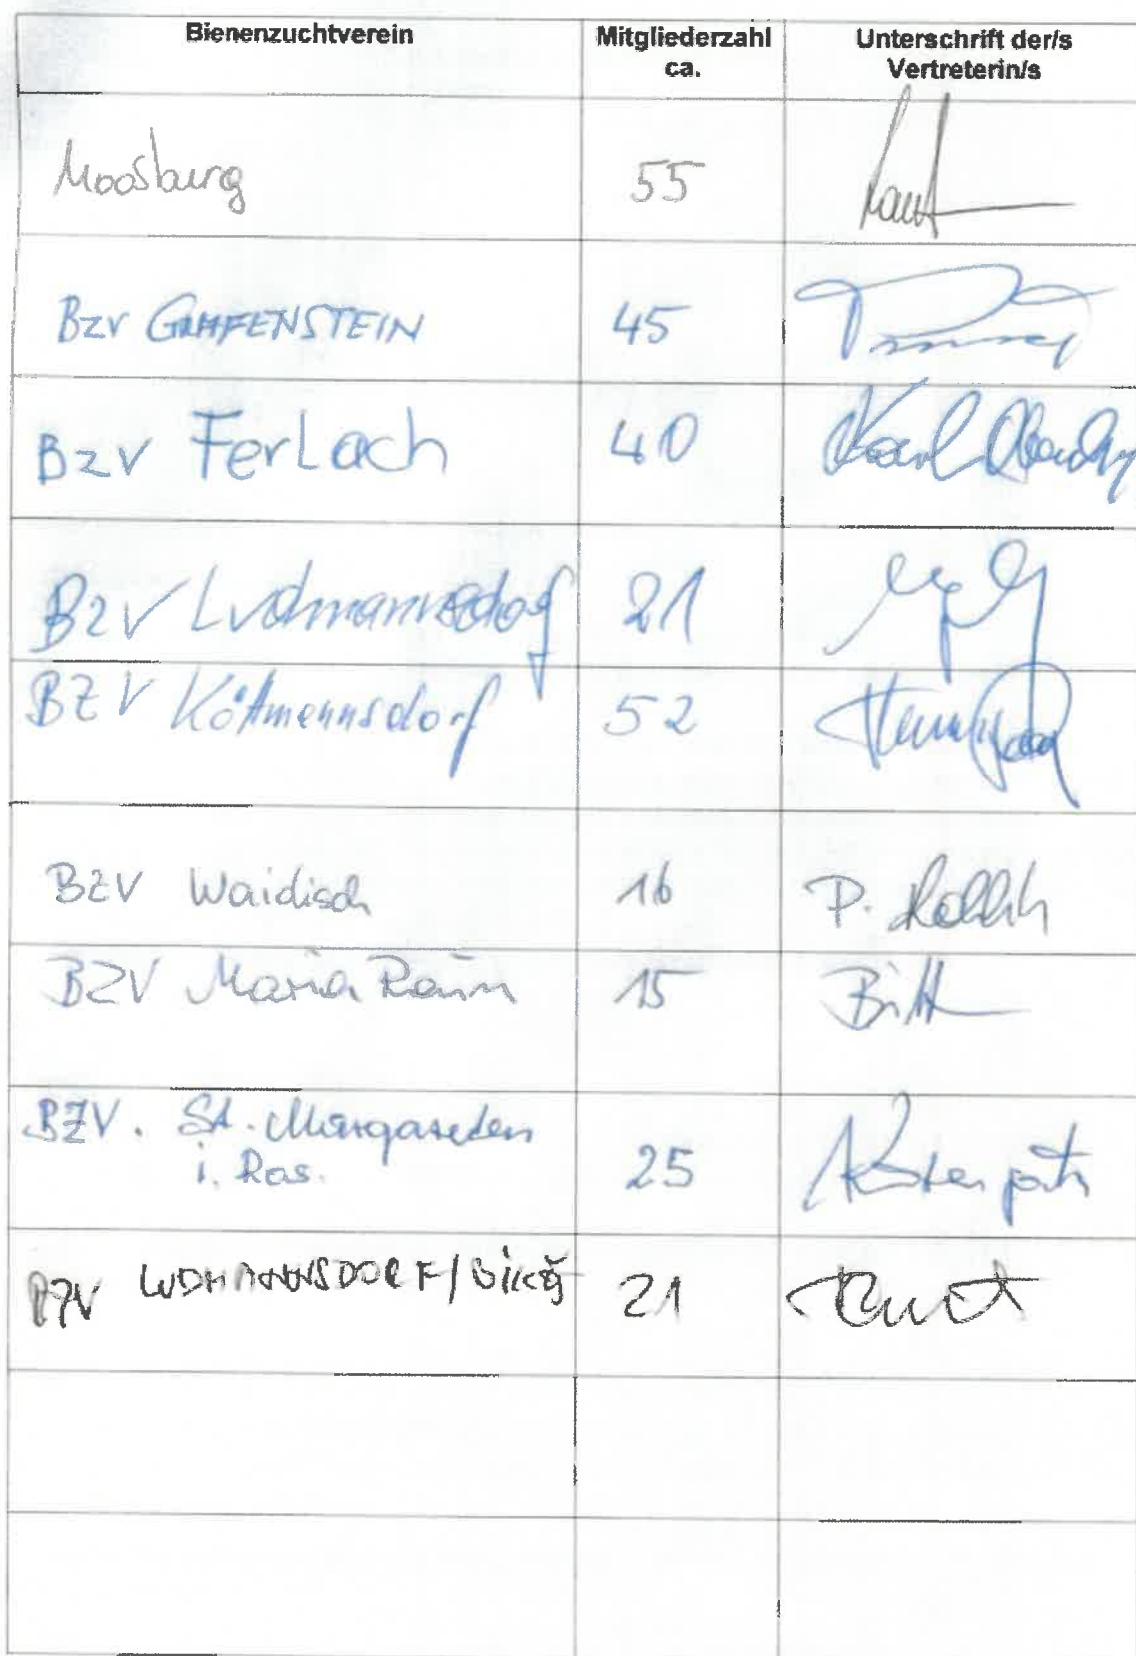 Bienenzuchtverein
Mitgliederzahl
ca.
Unterschrift der/s
Vertreterin/s
Moosburg 55
BZV GRAFENSTEIN 45
BZV FerLach 40 Karl
BZV Ludmannsdorf 21
BZV Köttmannsdorf 52
BZV Waidisch 16 P.
BZV Maria Rain 15
BZV. St. Margareten 25
i. Ros.
BZV LUDMANNSDORF/ 21